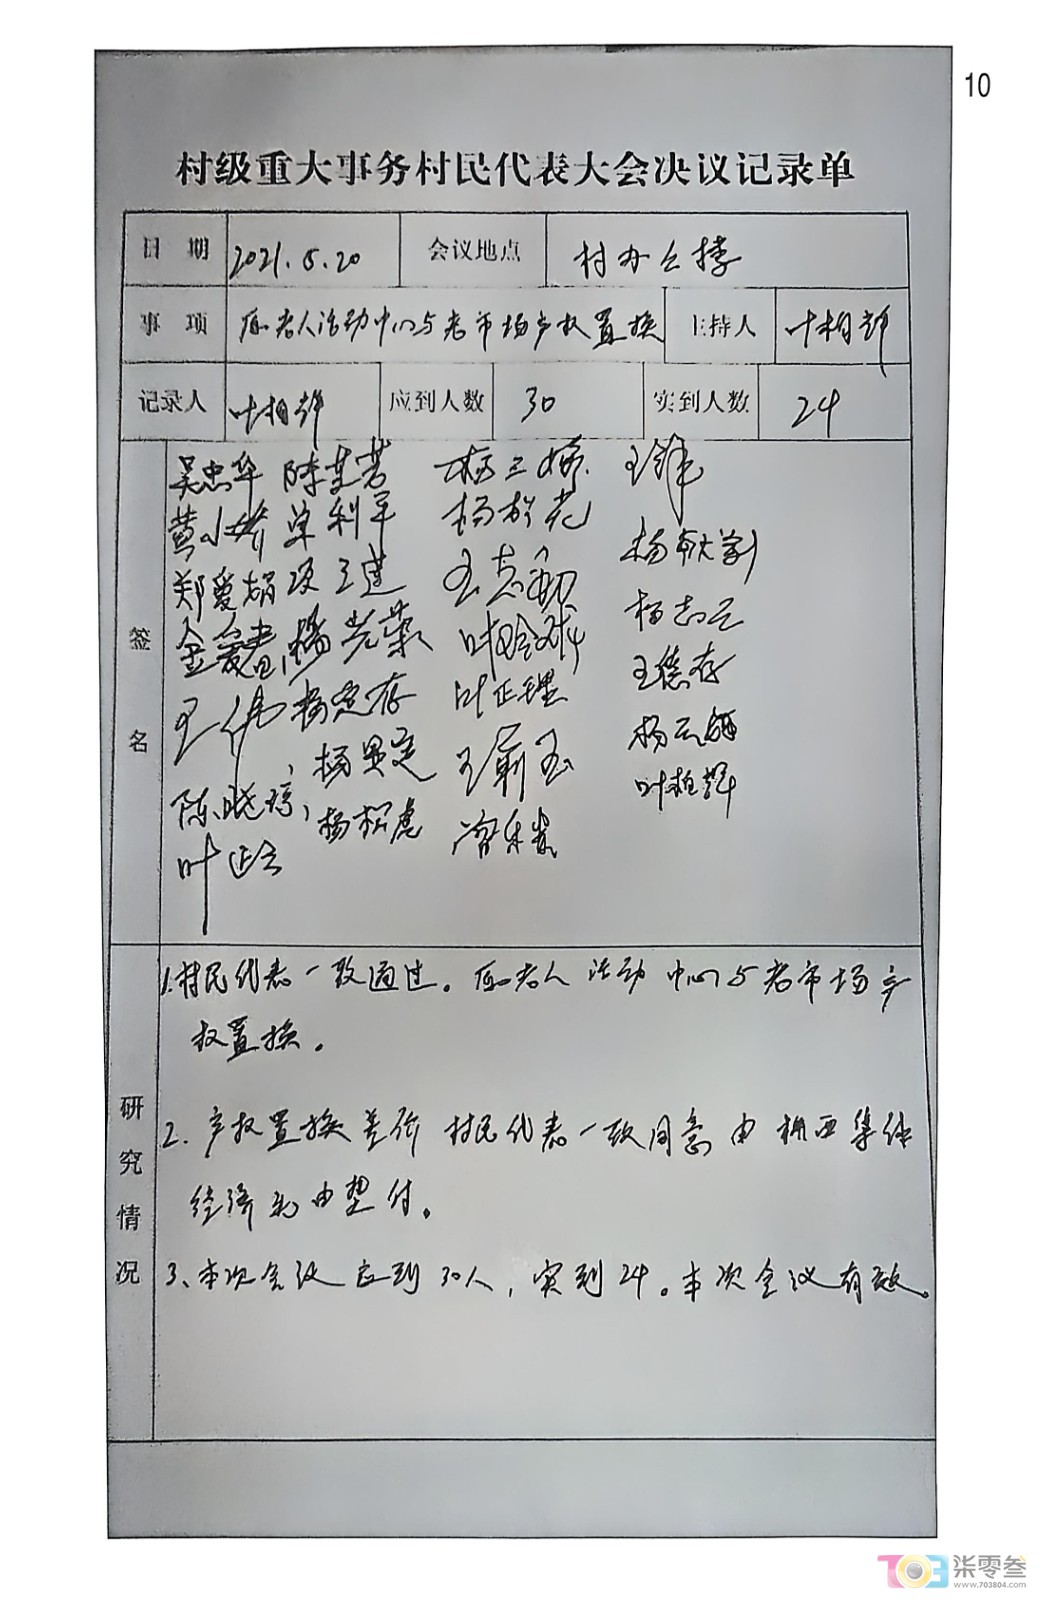 10
村级重大事务村民代表大会决议记录单
日期 2021.5.20 会议地点 村办公楼
事项 原老人活动中心与老市场产权置换 主持人 叶相辉
记录人 叶相辉 应到人数 30 实到人数 24
签名
吴忠华 陈 芳 杨三娇 王锋
黄小娇 单利平 杨松花
郑爱娟 项三莲 王志 杨
金 杨光荣 叶 杨志云
王伟 杨定存 叶正理 王德存
杨显定 王 玉 杨云
陈晓琼 杨松虎 叶相辉
叶正云
研究情况
1.村民代表一致通过。原老人活动中心与老市场产
权置换。
2.产权置换差价村民代表一致同意由 西集体
经济 由垫付。
3、本次会议应到30人,实到24。本次会议有效。
703 柒零叁
www.703804.com